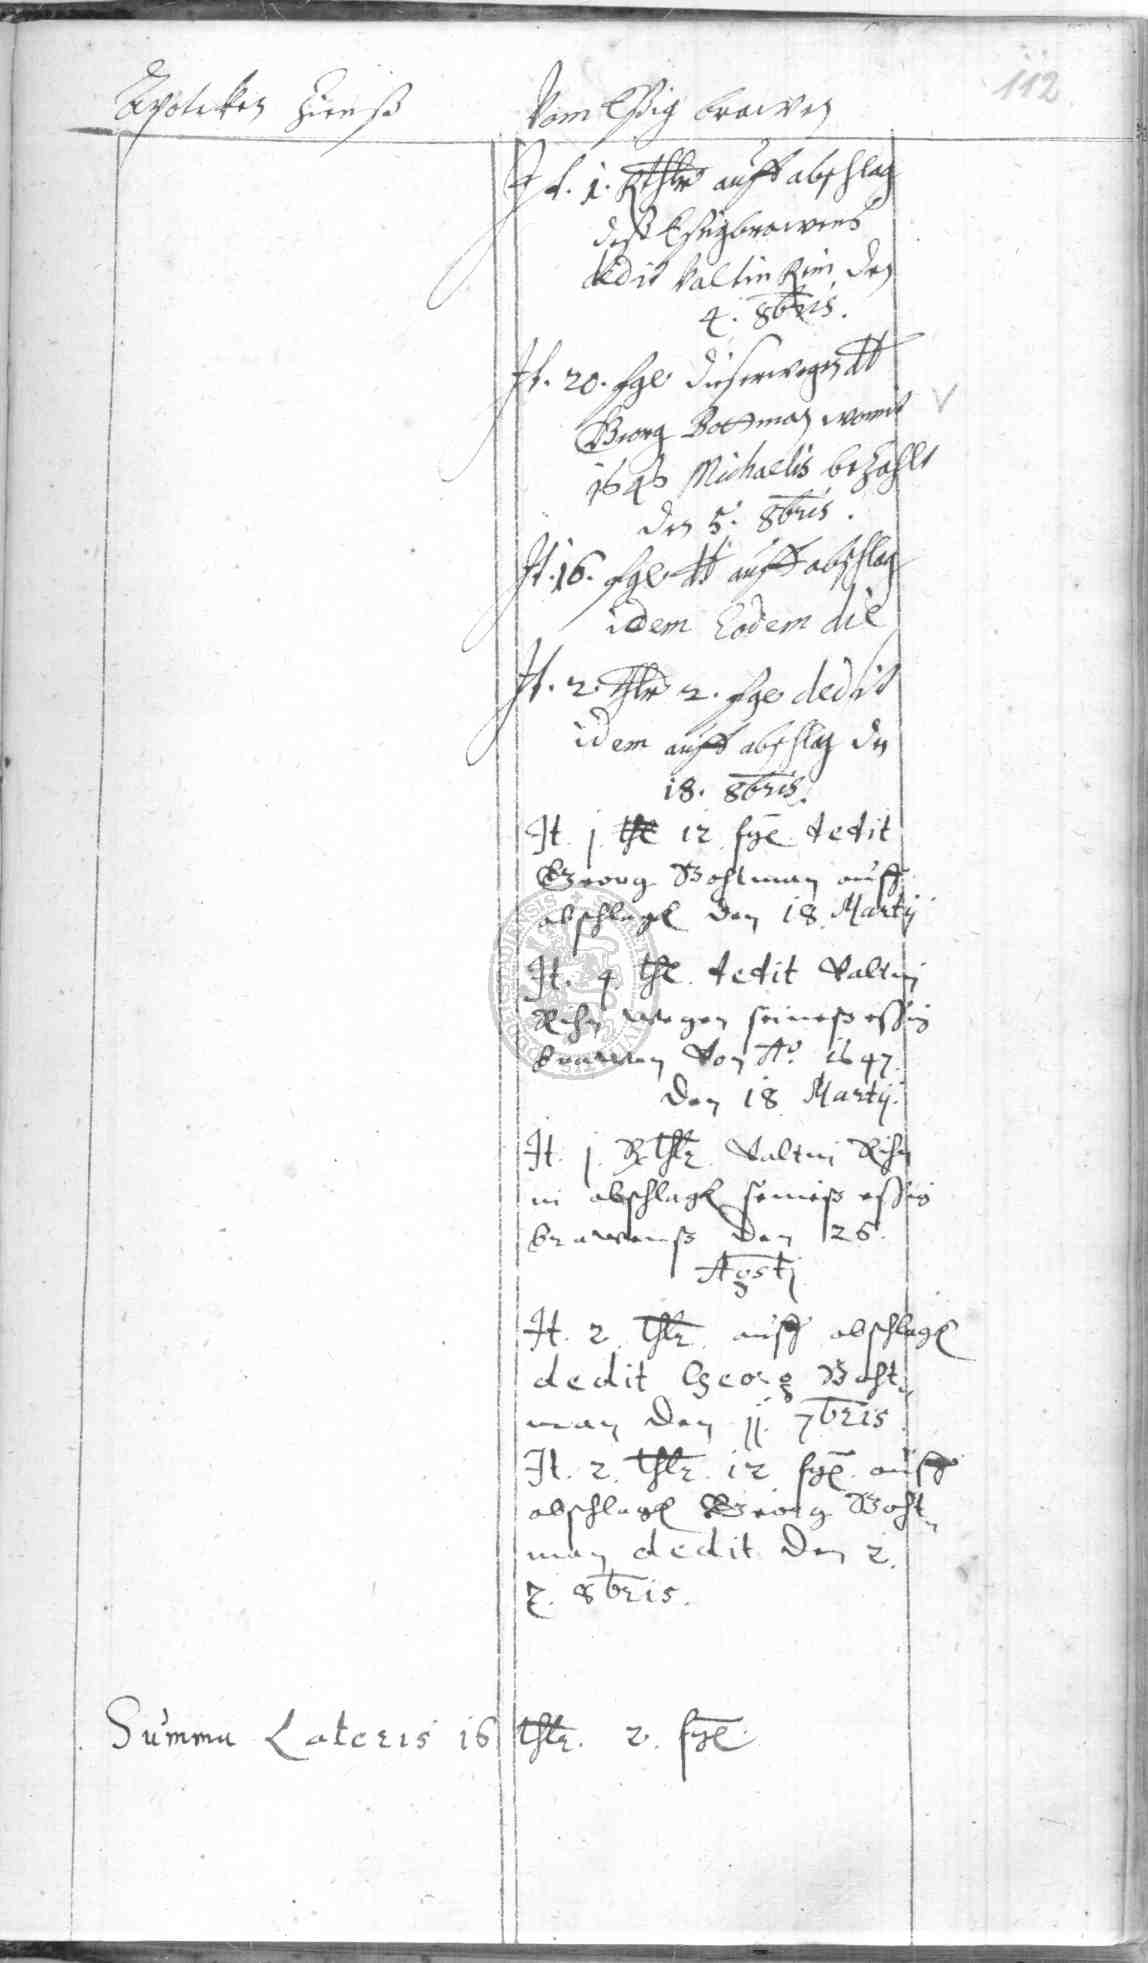 112
Apotecken Zienß
Vom Eßig brawen
It. 1. Rthlr auff abschlag
deß Eßigbrawens
dedit Valtin Rein den
4. 8bris.
It. 20. sgl dieserwegen dt
Georg Bottman womit
1646 Michaelis bezahlt
den 5. 8bris.
It. 16. sgl dt auff abschlag
idem Eodem die
It. 2. thlr 2. sgl dedit
idem auff abschlag den
18. 8bris.
It. j. thl 12 sgl. dedit
Georg Bohtman auff
abschlagk den 18 Martij
It. 4. thl. dedit Valtin
Rihn wegen seineß essig
brawen Von Aō 1647.
den 18 Martij.
It. j. Rthlr. Valtin Rihn
in abschlagk seineß essig
brawenß den 26.
Agsti
It. 2. thlr. auff abschlagk
dedit Georg Boht-
man den jj. 7bris
It. 2. thlr. 12 sgl. auff
abschlagk Georg Boht-
man dedit den 2.
8bris.
Summa Lateris 16 thlr. 2. sgl